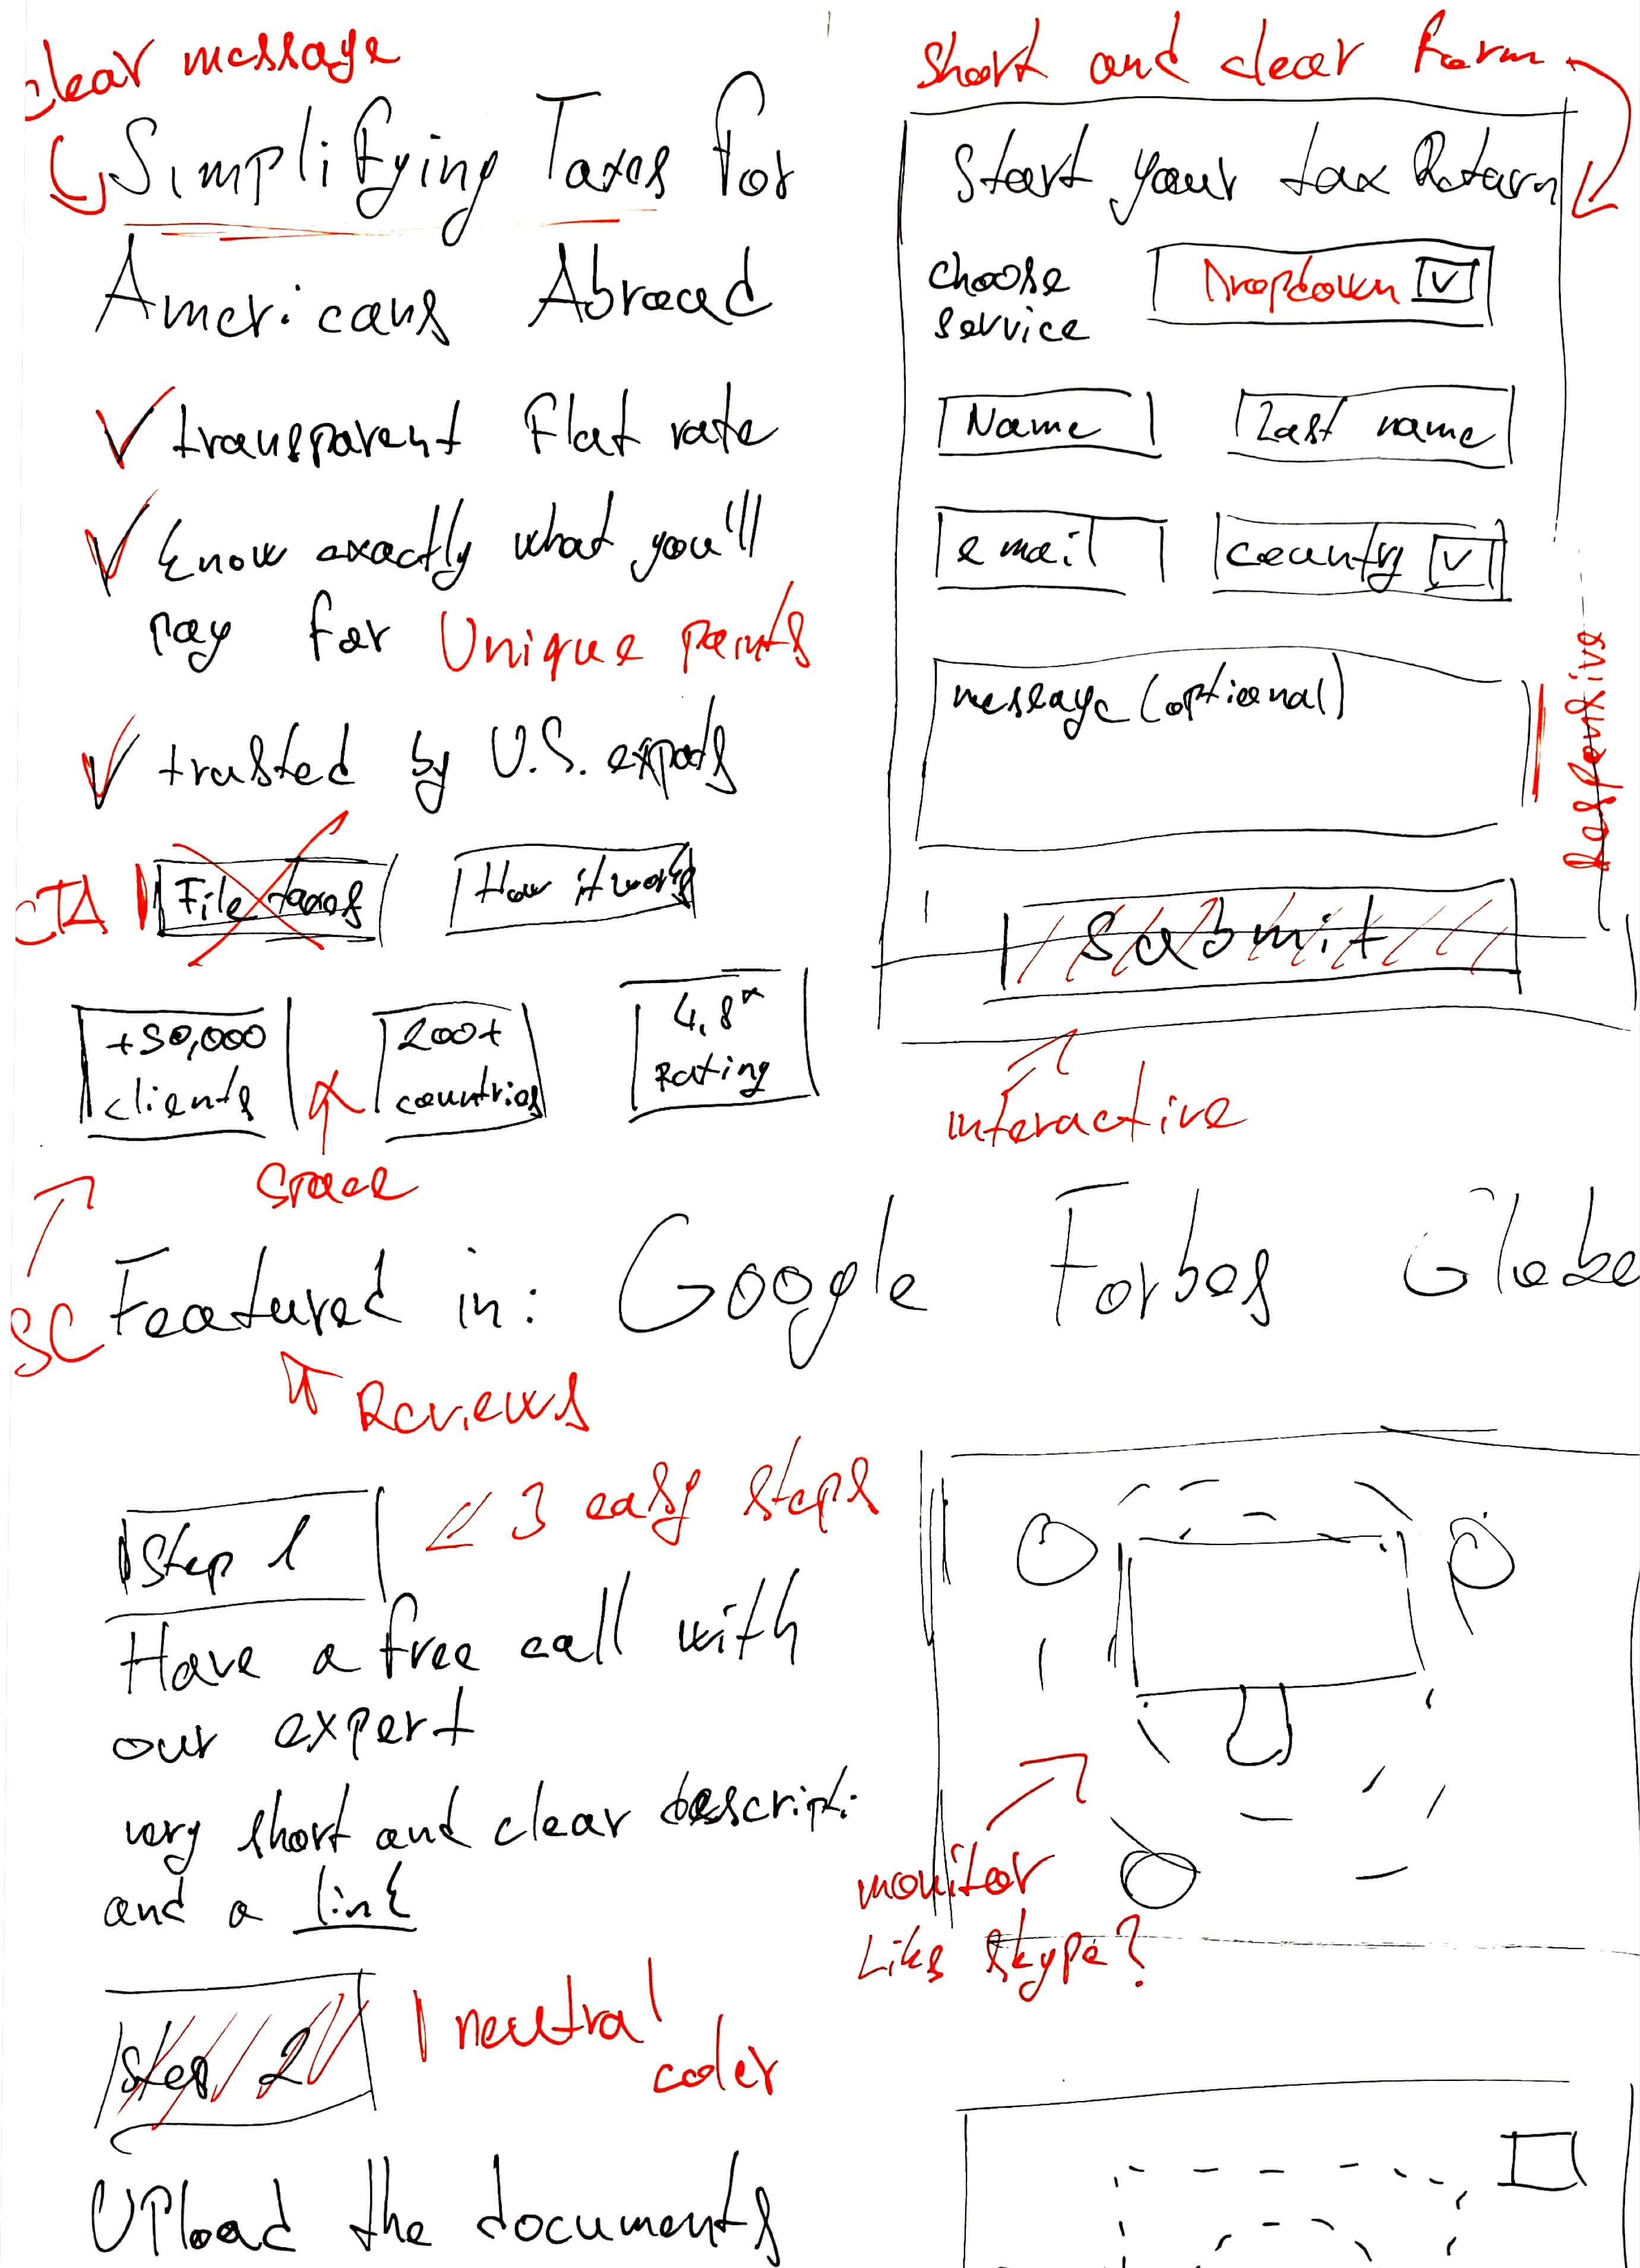 clear message
Simplifying Taxes for
Americans Abroad
transparent Flat rate
know exactly what you'll
pay for Unique points
trusted by U.S. expads
CTA File taxes How it works
+30,000 clients
200+ countries
4.8* Rating
space
SC Featured in: Google Forbes Globe
Reviews
Short and clear form
Start your tax Return
choose service Dropdown V
Name Last name
email country V
message (optional)
Responsive
submit
interactive
Step 1 3 easy steps
Have a free call with
our expert
very short and clear descript.
and a link
monitor
Like skype?
Step 2 neutral
color
Upload the documents